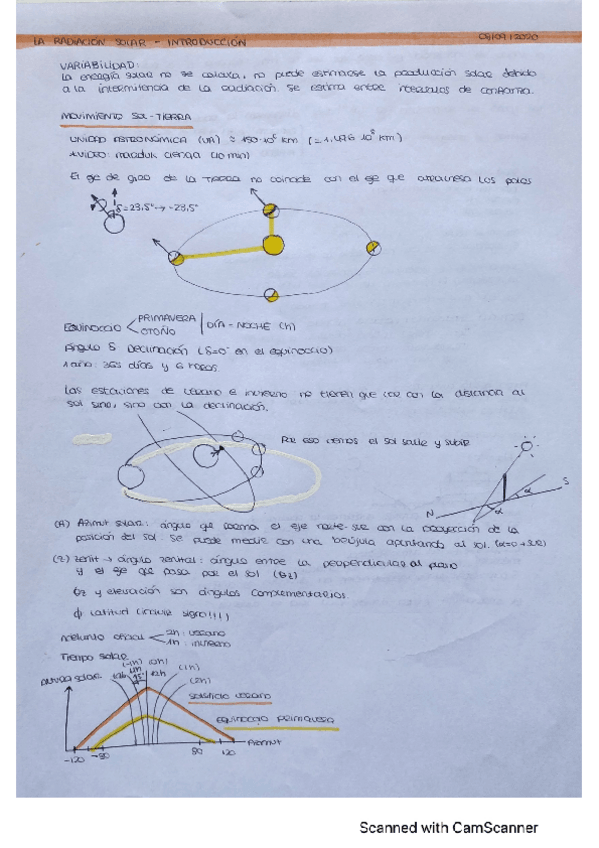 LA RADIACIÓN SOLAR - INTRODUCCIÓN 08/09/2020
VARIABILIDAD:
La energía solar no se calcula, no puede estimarse la producción solar debido
a la intermitencia de la radiación se estima entre intervalos de confianza.
MOVIMIENTO SOL-TIERRA
UNIDAD ASTRONÓMICA (UA) ≈ 150·10⁶ km (=1,496 10⁸ km)
(10 min)
El eje de giro de la TIERRA no coincide con el eje que atraviesa los polos
δ=23,5° → -23,5°
EQUINOCCIO PRIMAVERA
OTOÑO
DÍA = NOCHE (h)
Ángulo δ Declinación (δ=0° en el equinoccio)
1 año: 365 días y 6 horas
Las estaciones de verano e invierno no tienen que ver con la distancia al
sol sino, sino con la declinación.
Por eso vemos el sol salir y subir
N
S
α
α
(A) Azimut solar: ángulo que forma el eje norte-sur con la proyección de la
posición del sol. Se puede medir con una brújula apuntando al sol. (α=0 → SUR)
(Z) Zenit → ángulo zenital: ángulo entre la perpendicular al plano
y el eje que pasa por el sol (θz)
θz y elevación son ángulos complementarios.
ϕ Latitud (incluir signo!!!)
Adelanto oficial 2h: verano
1h: invierno
Tiempo solar
Altura solar
(-1h) (0h)
12h
(1h)
(2h)
15°
solsticio verano
equinoccio primavera
Azimut
-120 -90 90 120
Scanned with CamScanner